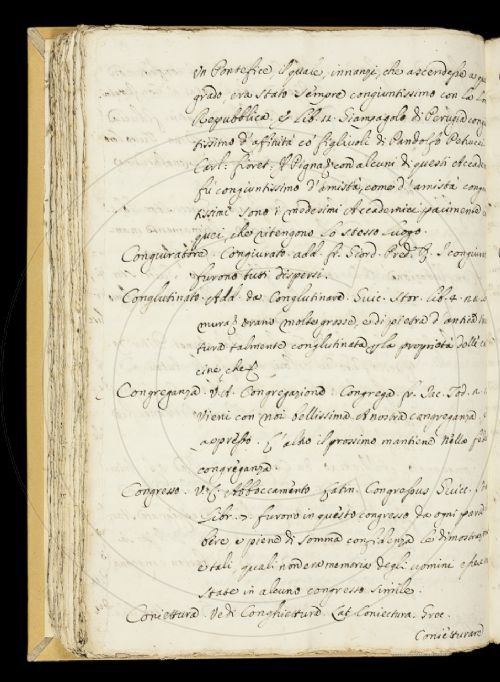 Un Pontefice, il quale, innanzi, che ascendesse a
grado, era stato sempre congiuntissimo con la
Repubblica. E lib. 11. Giampagolo di Perugia
tissimo d'affinità co' figliuoli di Pandolfo Petrucci
Carl: fioret. Pigna con alcuni di questi
fù congiuntissimo d'amistà, come d'amistà
tissimi sono i medesimi Accademici parimente
quei, che ritengono lo stesso luogo.
Congiuratore. Congiurato. add. fr. Giord. Pred. I
furono tuti dispersi.
Conglutinato. Add. da Conglutinare. Guic. Stor. lib. 4.
mura erano molto grosse, e di pietra d'antica
tura talmente conglutinata la proprietà delle
cine, che
Congreganza. V.A. Congregazione. Congrega. fr. Jac. Tod.
Vieni con noi bellissima A nostra congreganza
appresso. il prossimo mantiene Nella
congreganza.
Congresso. V.L. Abboccamento. Latin. Congressus. Guicc.
Libr. 7. furono in questo congresso da ogni
bere e piene di somma confidenza le
e tali, quali non era memoria degli uomini
state in alcuno congresso simile.
Coniettura. Vedi Conghiettura. Lat. Coniectura. Grec.
Conietturare